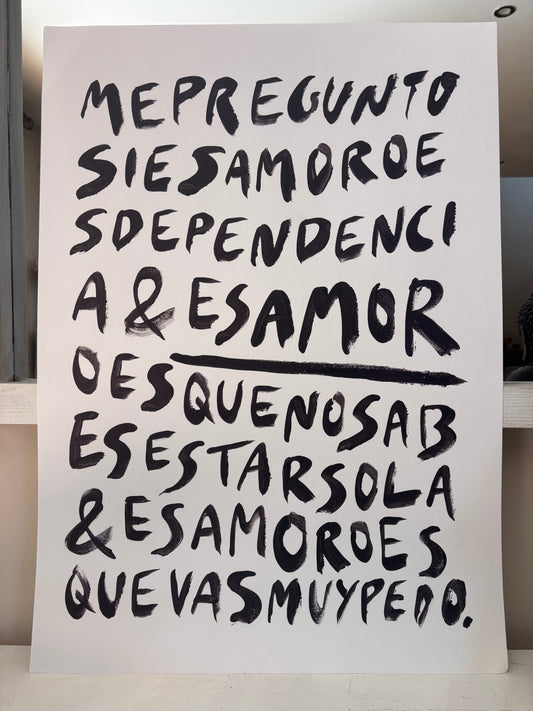 MEPREGUNTO
SIESAMOROE
SDEPENDENCI
A&ESAMOR
OESQUENOSAB
ESESTARSOLA
&ESAMOROES
QUEVASMUYPEDO.